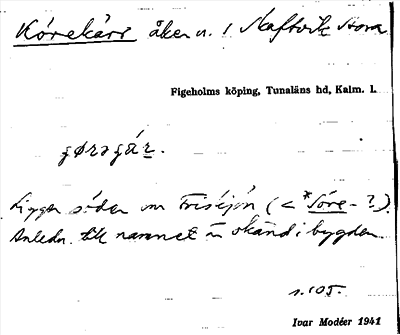 Körekärr åker n. 1 Skaftvik Stora
Figeholms köping, Tunaläns hd, Kalm. l.
gøragár.
Ligger söder om Frisejön (< *Söre-?).
Anledn. till namnet är okänd i bygden.
s. 105.
Ivar Modéer 1941